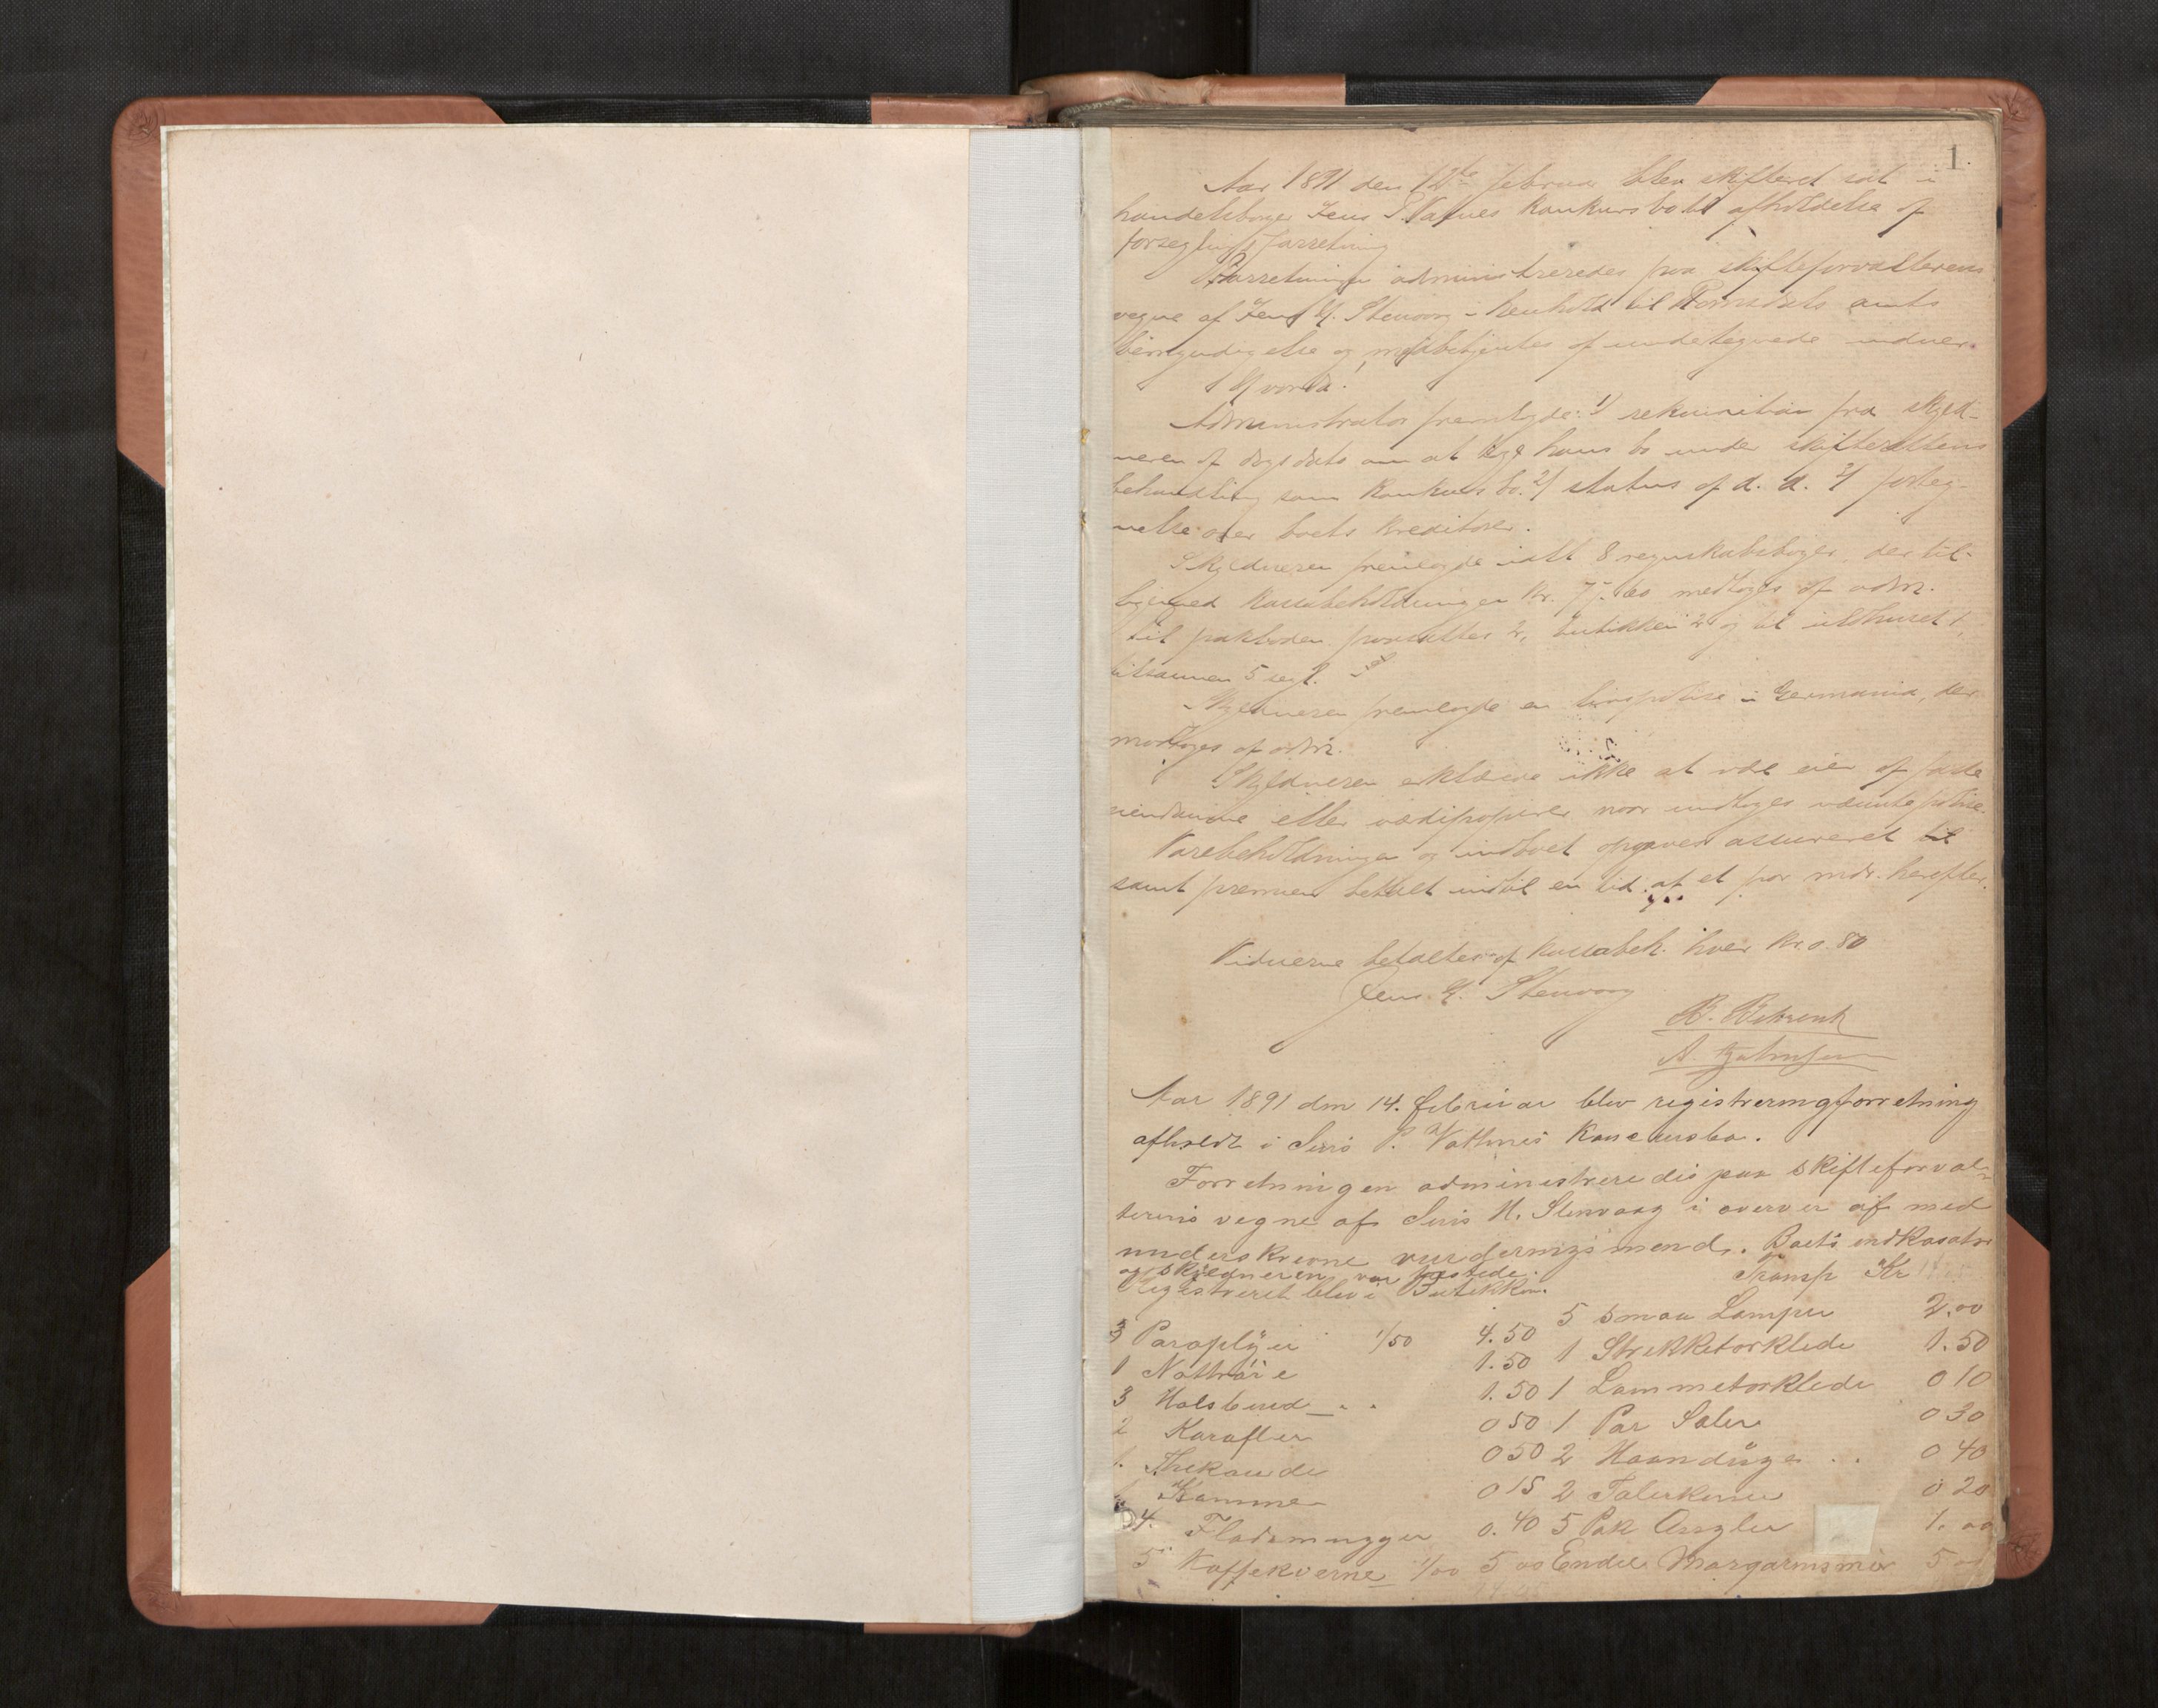 1.
Aar 1891 den 12te februar blev skifteret sat i
handelsborger Jens P. Vatnes konkursbo til afholdelse af
forseglingsforretning
Forretningen administreredes paa skifteforvalterens
vegne af Jens H. Stenvaag i henhold til Romsdals amts
bemyndigelse og medbetjentes af undertegnede vidner.
Hvorda!
Administrator fremlagde: 1/ rekvisition fra skyld-
neren af dags dato om at tage hans bo under skifterettens
behandling som konkursbo. 2/ status af d. d. 3/ forteg-
nelse over boets kreditorer.
Skyldneren fremlagde ialt 8 regnskabsbøger, der til-
ligemed kassabeholdningen kr. 77.60 modtoges af adm.
til pakboden paasattes 2, butikken 2 og til ildhuset 1,
tilsammen 5 segl.
Skyldneren fremlagde en livspolise i Germania, der
modtoges af adm.
Skyldneren erklærede ikke at være eier af faste
eiendomme eller værdipapirer naar undtages nævnte polise.
Varebeholdningen og indboet opgaves assureret
samt præmien betalt indtil en tid af et par mdr. herefter.
Vidnerne betaltes af kassabeh. hver kr. 0.80
Jens H. Stenvaag
B. Behrent
A.
Aar 1891 den 14. februar blev registreringsforretning
afholdt i Jens P. Vatnes Koncursbo.
Forretningen administreredes paa skifteforval-
terens vegne af Jens H. Stenvaag i overvær af med
underskrevne vurderingsmænd. Boets indkasator
og skyldneren var tilstede.
Transp Kr
Registreret blev i Butikken.
3 Paraplyer 1/50 4.50
5 smaa Lamper 2.00
1 Nattrøie 1.50
1 Strikketørklede 1.50
3 Halsbind 1.50
1 Lommetørklede 0 10
2 Karafler 0 50
1 Par Saler 0 30
1. Thekande 0 50
2 Haanduge 0 40
Kamme 0 15
2 Talerkener 0 20
4. Fladmugger 0.40
5 Pak 1.00
5 Kaffekverne 1/00 5 00
Endel Margarinsmør 5 00